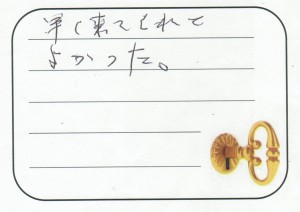 早く来てくれて
よかった。